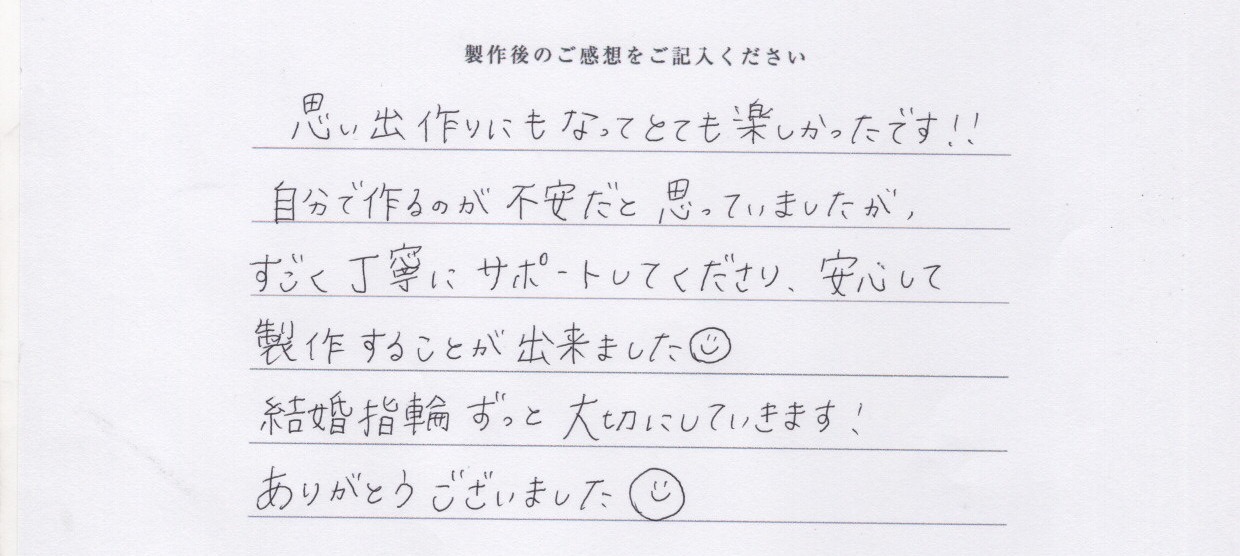 製作後のご感想をご記入ください
思い出作りにもなってとても楽しかったです!!
自分で作るのが不安だと思っていましたが,
すごく丁寧にサポートしてくださり、安心して
製作することが出来ました☺
結婚指輪ずっと大切にしていきます!
ありがとうございました☺